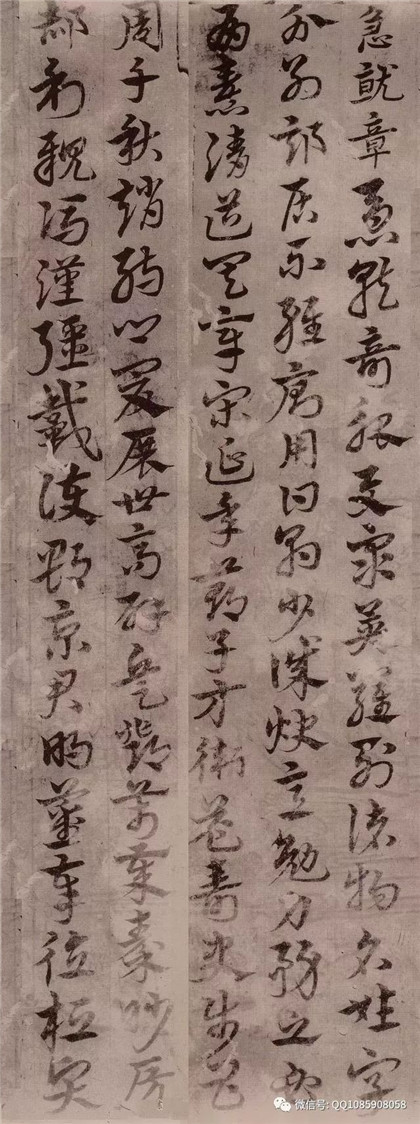 急就章急就奇觚與衆異羅列諸物名姓字
分別部居不雜廁用日約少誠快意勉力務之必
有憙請道其章宋延年鄭子方衛益壽史步昌
周千秋趙孺卿爰展世高辟兵鄧萬歲秦眇房
郝利親馮漢彊戴護郡景君明董奉德桓賢
微信号: QQ1085908058